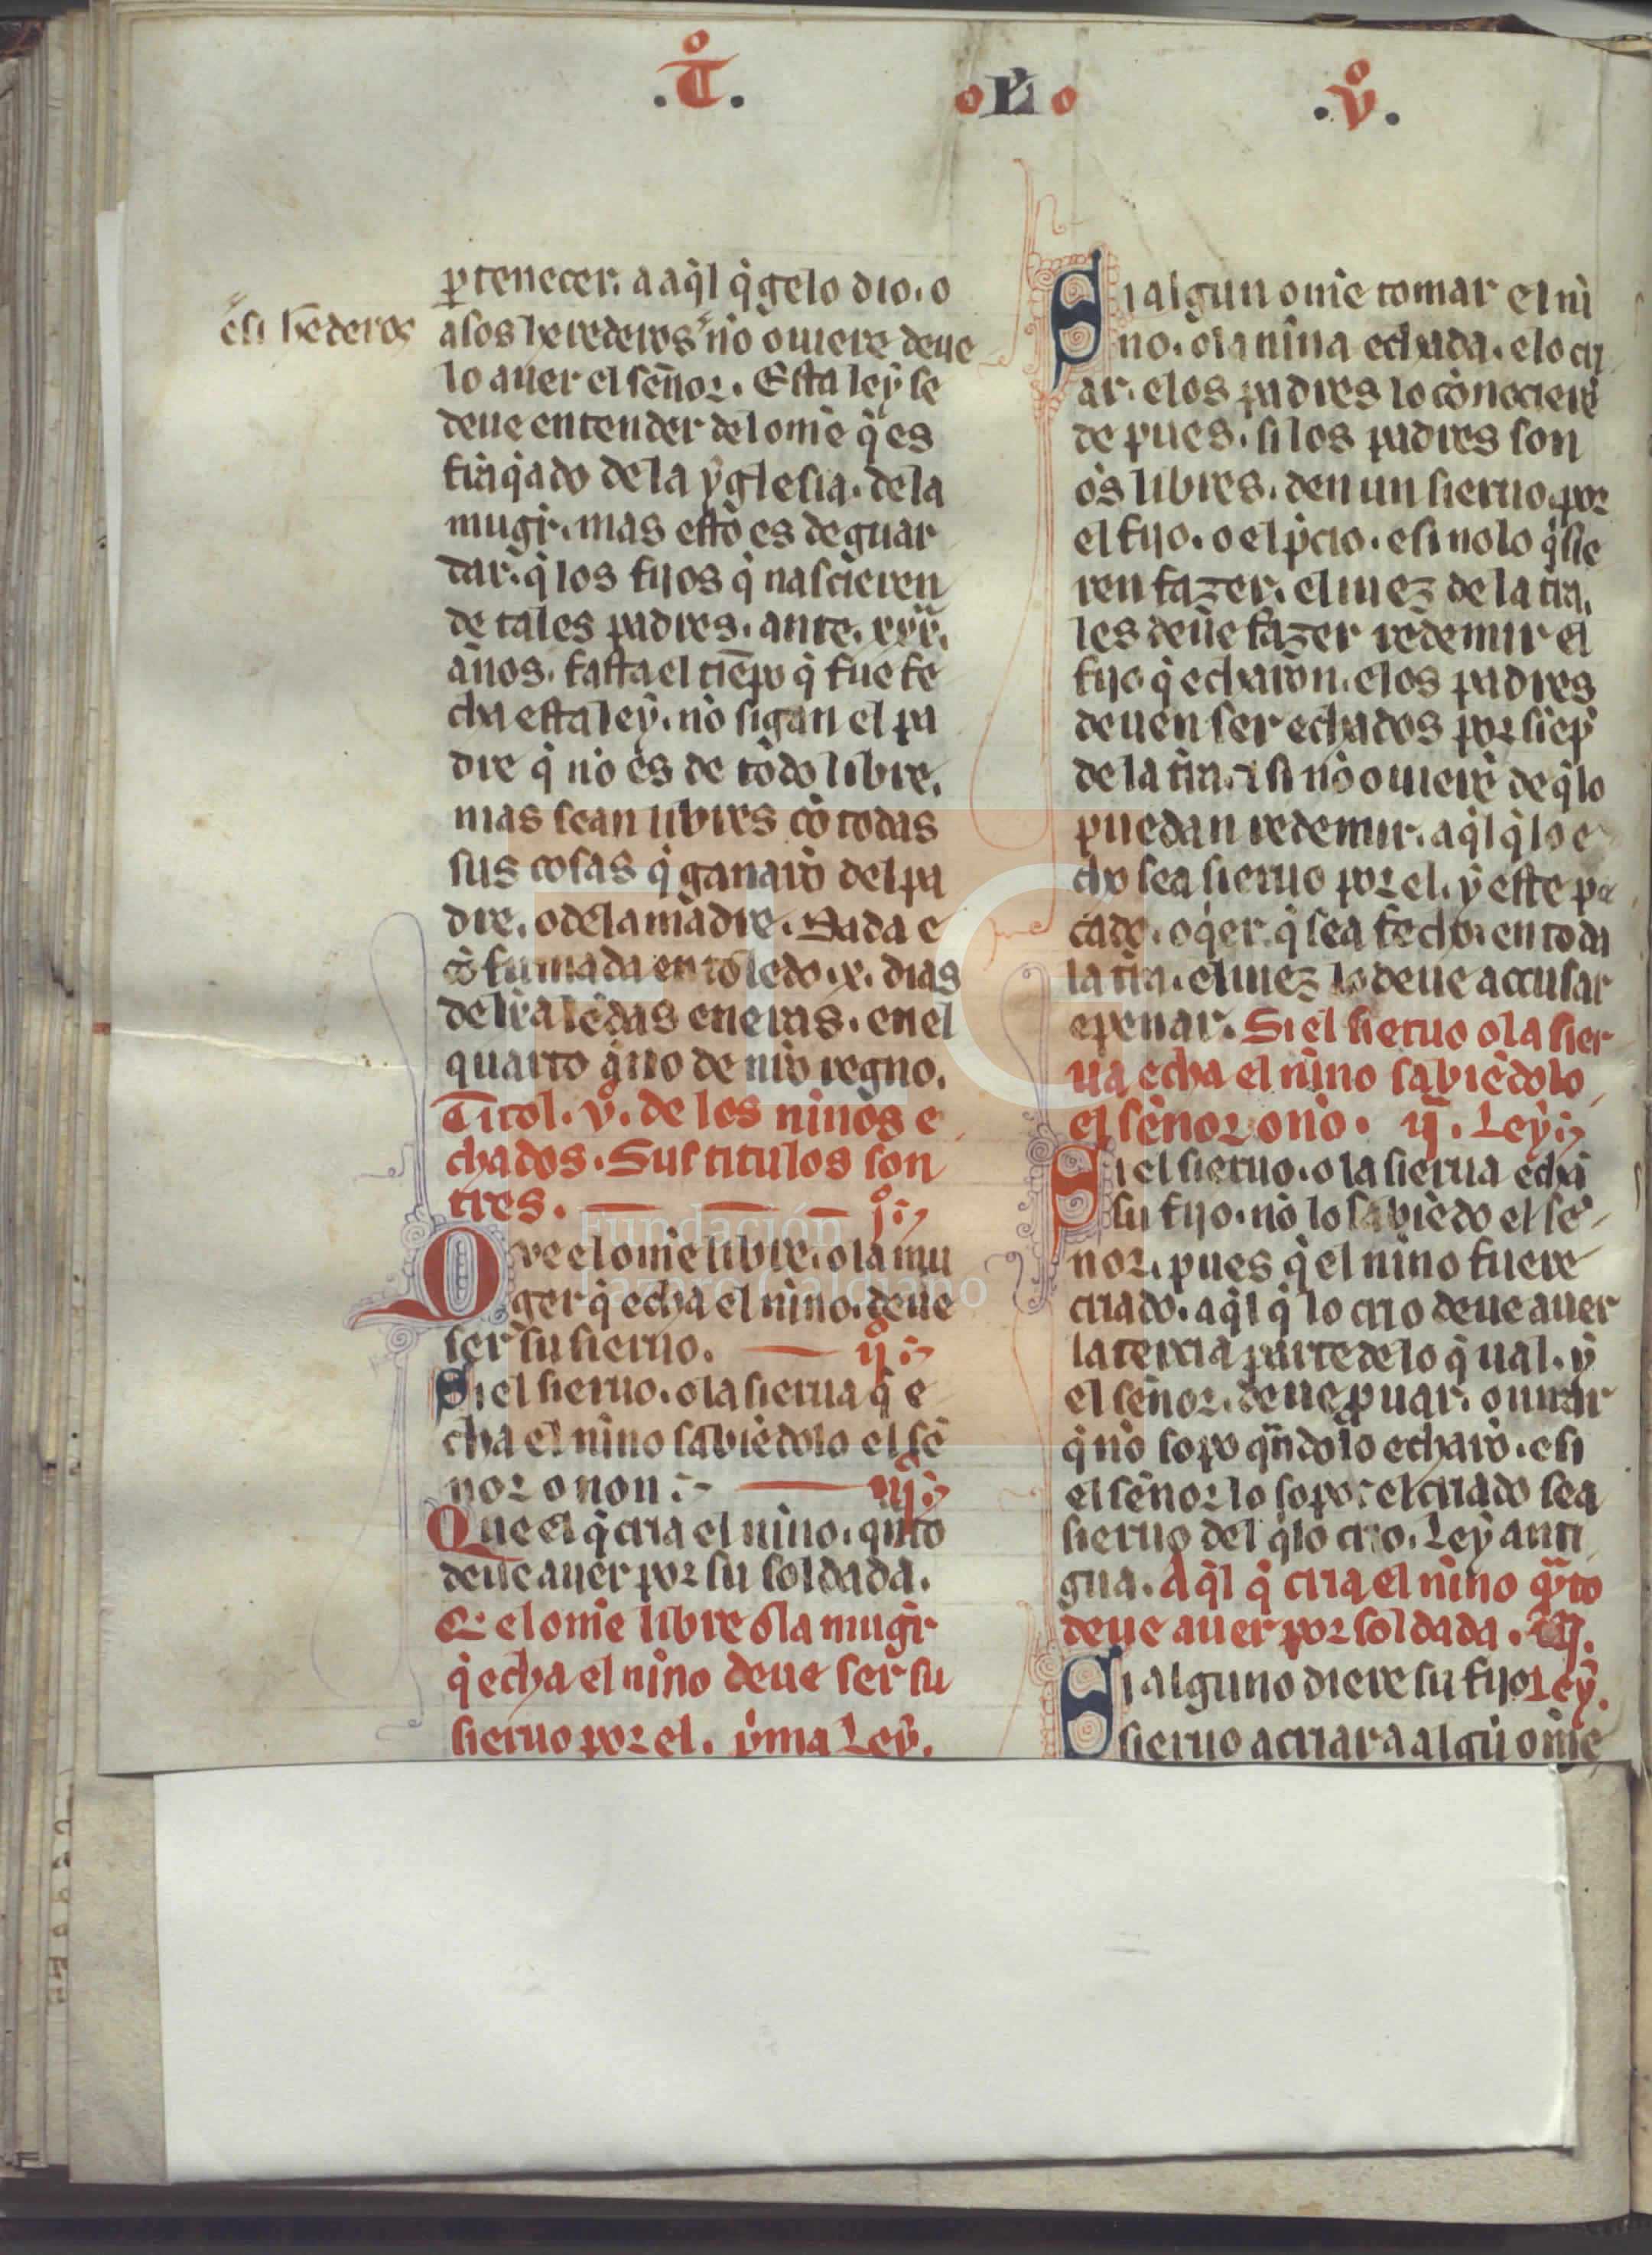 .T̊. o L̊ o .v̊.
p̱tenecer. a aq̇l q̇ gelo dio. o
esi hẽderos
a sos herederos nõ ouiere deue
lo auer el señor. Esta leẏ se
deue entender del om̃e q̇ es
frãq̇ado dela ẏglesia. dela
mugr̃. mas esto es de guar
dar. q̇ los fijos q̇ nascieren
de tales padres. ante. xxx.
años. fasta el tiẽpo q̇ fue fe
cha esta leẏ. nõ sigan el pa
dre q̇ nõ es de todo libre.
mas sean libres cõ todas
sus cosas q̇ ganarõ del pa
dre. o dela madre. Dada e
cõfirmada en toledo. x. dias
de kalẽdas eneras. en el
quarto año de nr̃o regno.
Titol. v̊. de los ninos e
chados. Sus titulos son
tres. j̊.
Qve el om̃e libre. o la mu
ger q̇ echa el nino. deue
ser su sieruo. ij̊.
Si el sieruo. o la sierua q̇ e
cha el nino sabiẽdolo el se
nor o non. iij̊.
Que el q̇ cria el nino. quãto
deue auer por su soldada.
El om̃e libre o la mugr̃
q̇ echa el nino deue ser su
sieruo por el. p̊ma Leẏ.
Si algun om̃e tomar el ni
no. o la nina echada. e lo cri
ar. e los padres lo cõnocierẽ
de pues. si los padres son
õs libres. den un sieruo. por
el fijo. o el p̊cio. e si nolo q̇sie
ren fazer. el iuez de la tr̃a.
les deue fazer redemir el
fijo q̇ echaron. e los padres
deuen ser echados por siẽp̊
de la tr̃a. e si nõ ouierẽ de q̇ lo
puedan redemir. aq̇l q̇ lo e
cho sea sieruo por el. ẏ este pe
cado. o q̇er. q̇ sea fecho. en toda
la tr̃a. el iuez lo deue accusar
e penar. Si el sieruo o la sier
ua echa el nino sabiẽdolo
el señor o no. ij. Leẏ.
Si el sieruo. o la sierua echa
su fijo. nõ lo sabiẽdo el se
nor. pues q̇ el nino fuere
criado. aq̇l q̇ lo crio deue auer
la tercia parte delo q̇ ual. ẏ
el señor. deue p̱uar. o iurar
q̇ nõ sopo qñdo lo echarõ. e si
el señor lo sopo: el criado sea
sieruo del q̇lo crio. Leẏ anti
gua. Aq̇l q̇ cria el nino qãto
deue auer por soldada. iij.
Si alguno diere su fijo Leẏ.
sieruo a criar a algũ om̃e
Fundación
Lázaro Galdiano